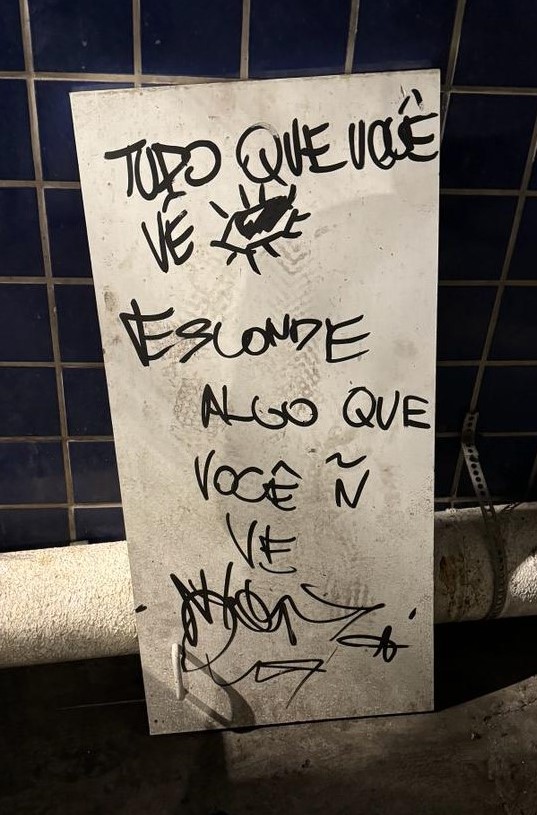 TUDO QUE VOCÊ
VÊ
ESCONDE
ALGO QUE
VOCÊ Ñ
VE